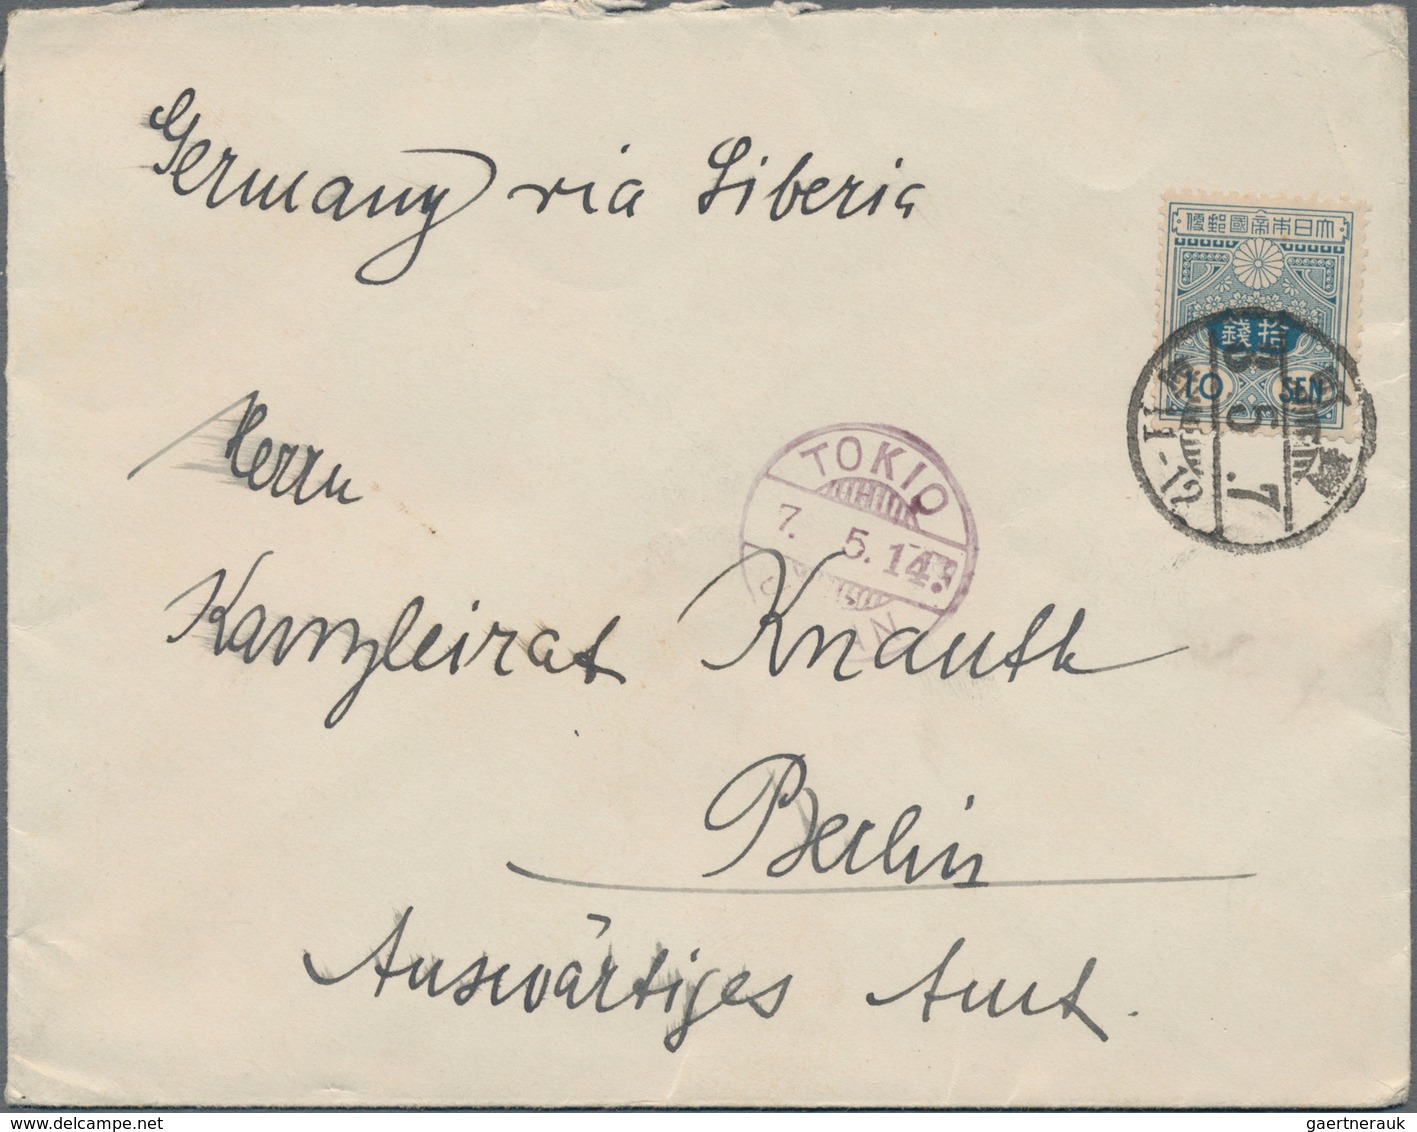 Germany via Siberia
大日本帝國郵便
拾錢
10 SEN
3
5
.7
11-12
TOKIO
7. 5. 14.
Herrn
Kanzleirat Knauth
Berlin
Auswärtiges Amt.
gaertnerauk